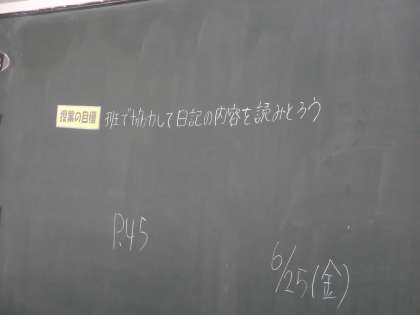 授業の目標 班で協力して日記の内容を読みとろう
P.45
6/25(金)